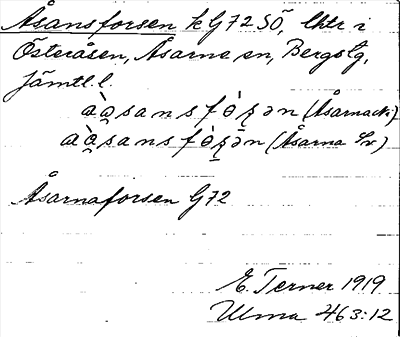 Åsansforsen k G72 SÖ, lktr i
Österåsen, Åsarne sn, Bergs lg,
Jämtl. l.
a᷅ɑ̯̀sansfò̤ʂən (Åsarneck.)
aɑ̯̀sansfò̤ʂə̄n (Åsarna Sv)
Åsarnaforsen G72
E. Terner 1919
Ulma 463:12